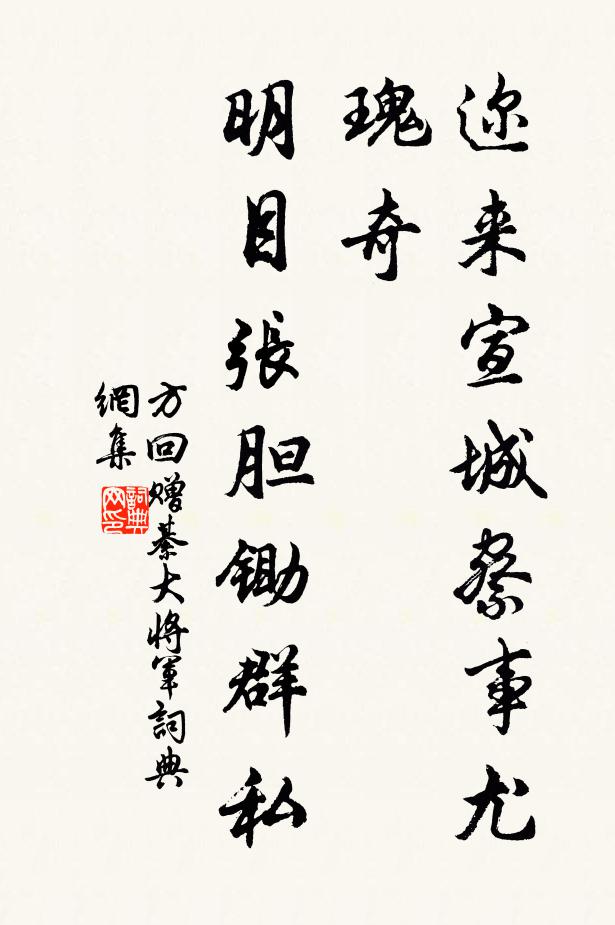 迩来宣城察事尤
瑰奇
明目张胆锄群私
方回赠綦大将军词典
网集
詞典
网印